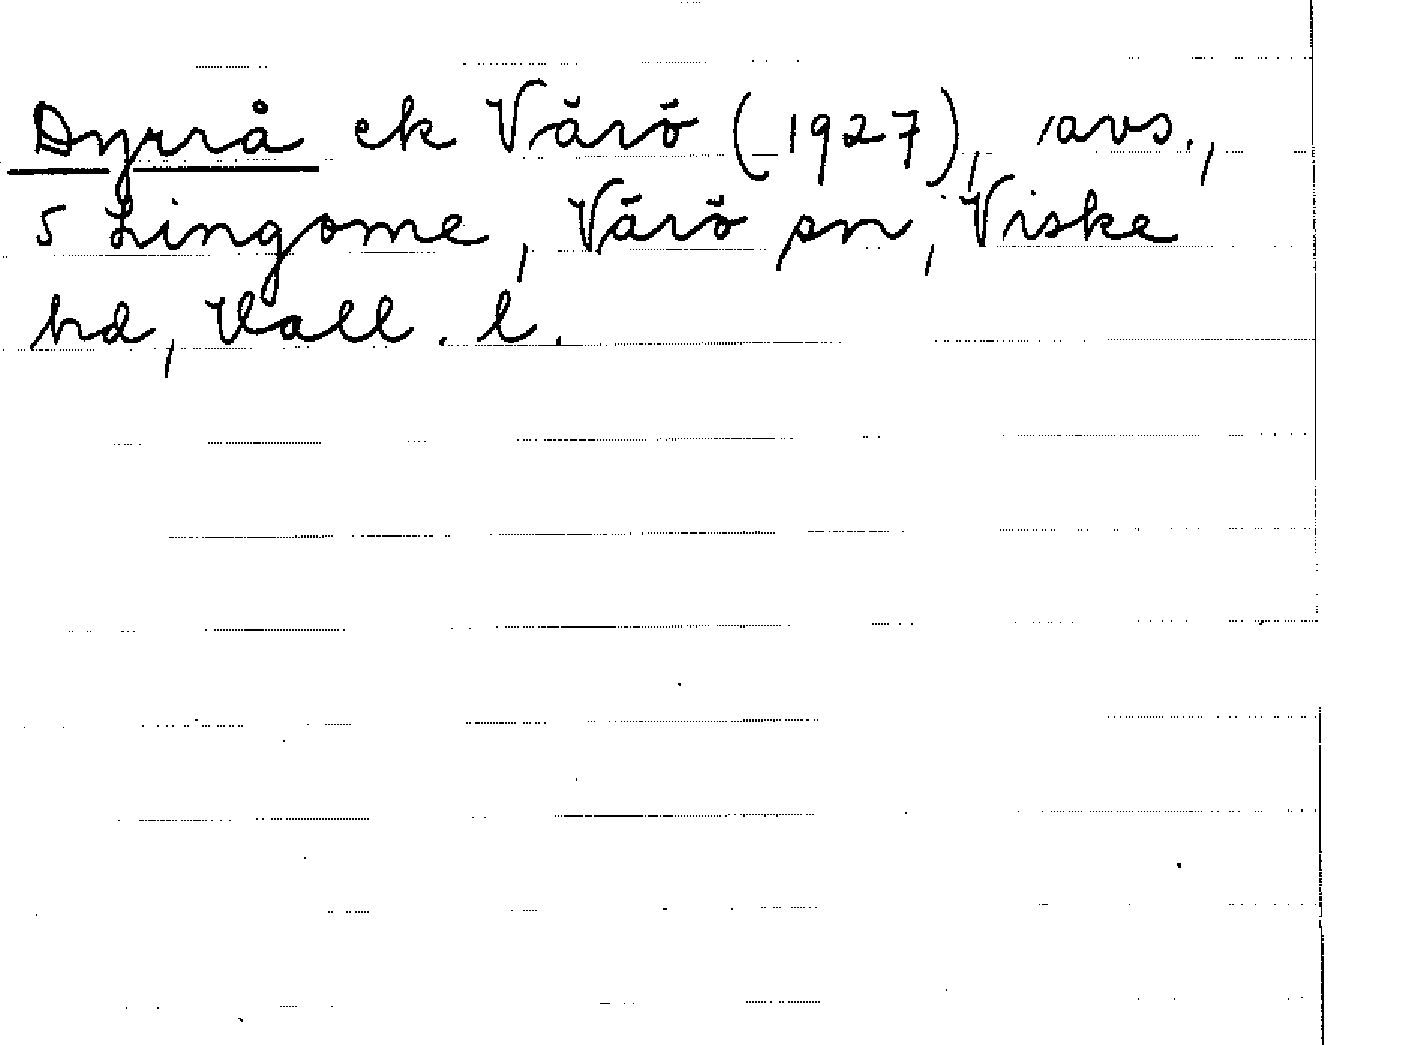 Dyrrå ek Värö (1927), avs.,
S Lingome, Värö sn, Viske
hd, Vall. l.